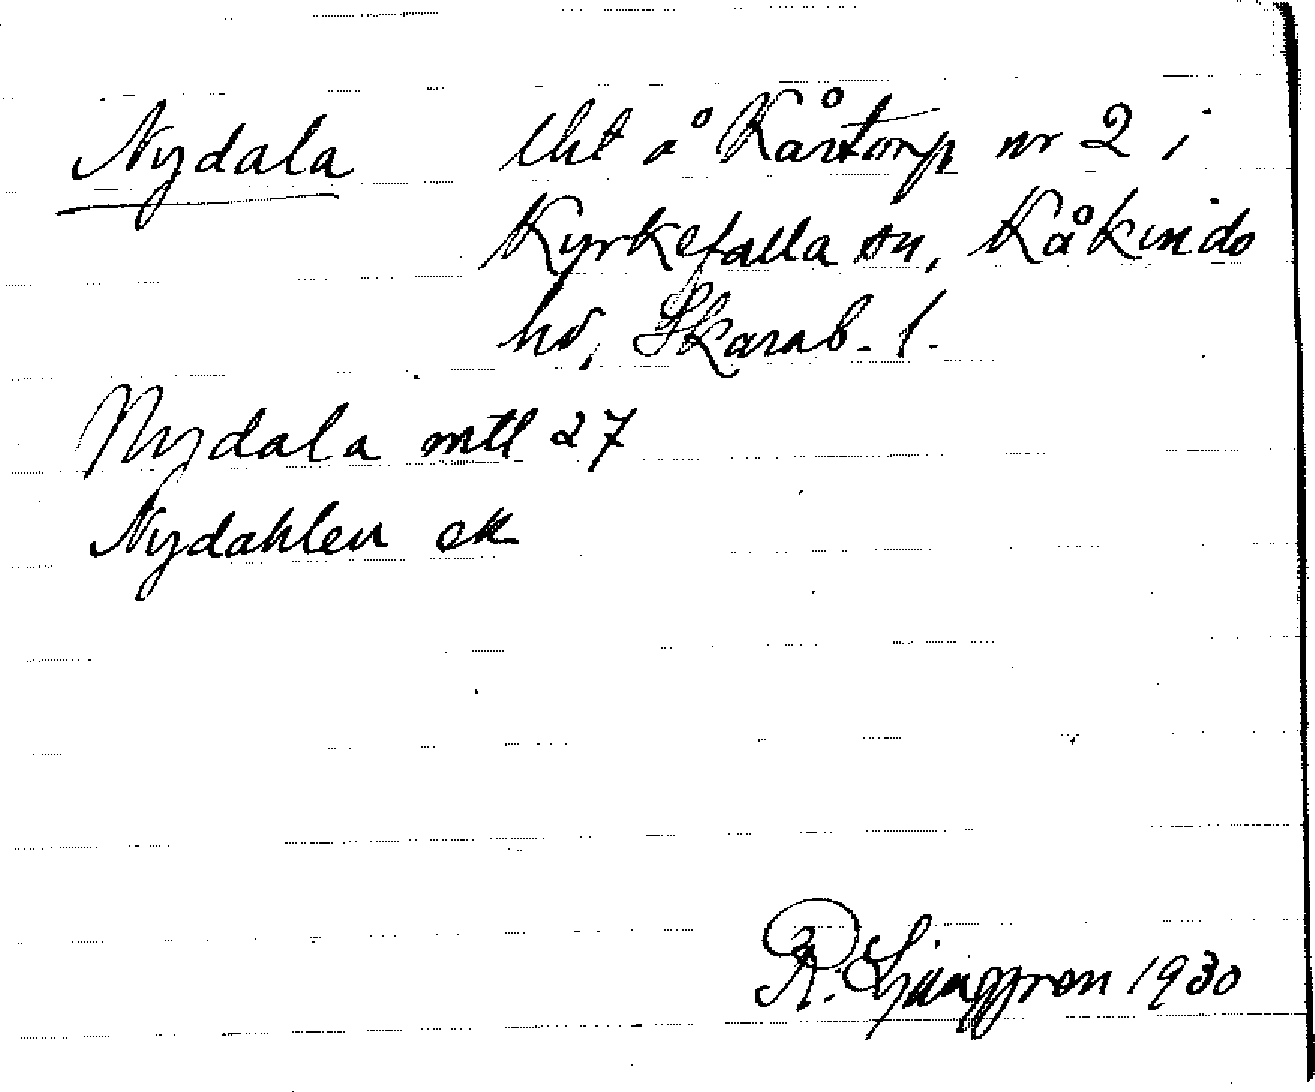 Nydala lht å Kåstorp nr 2 i
Kyrkefalla sn, Kåkinds
hd, Skarab. l.
Nydala mtl 27
Nydahlen ek
R. Ljunggren 1930